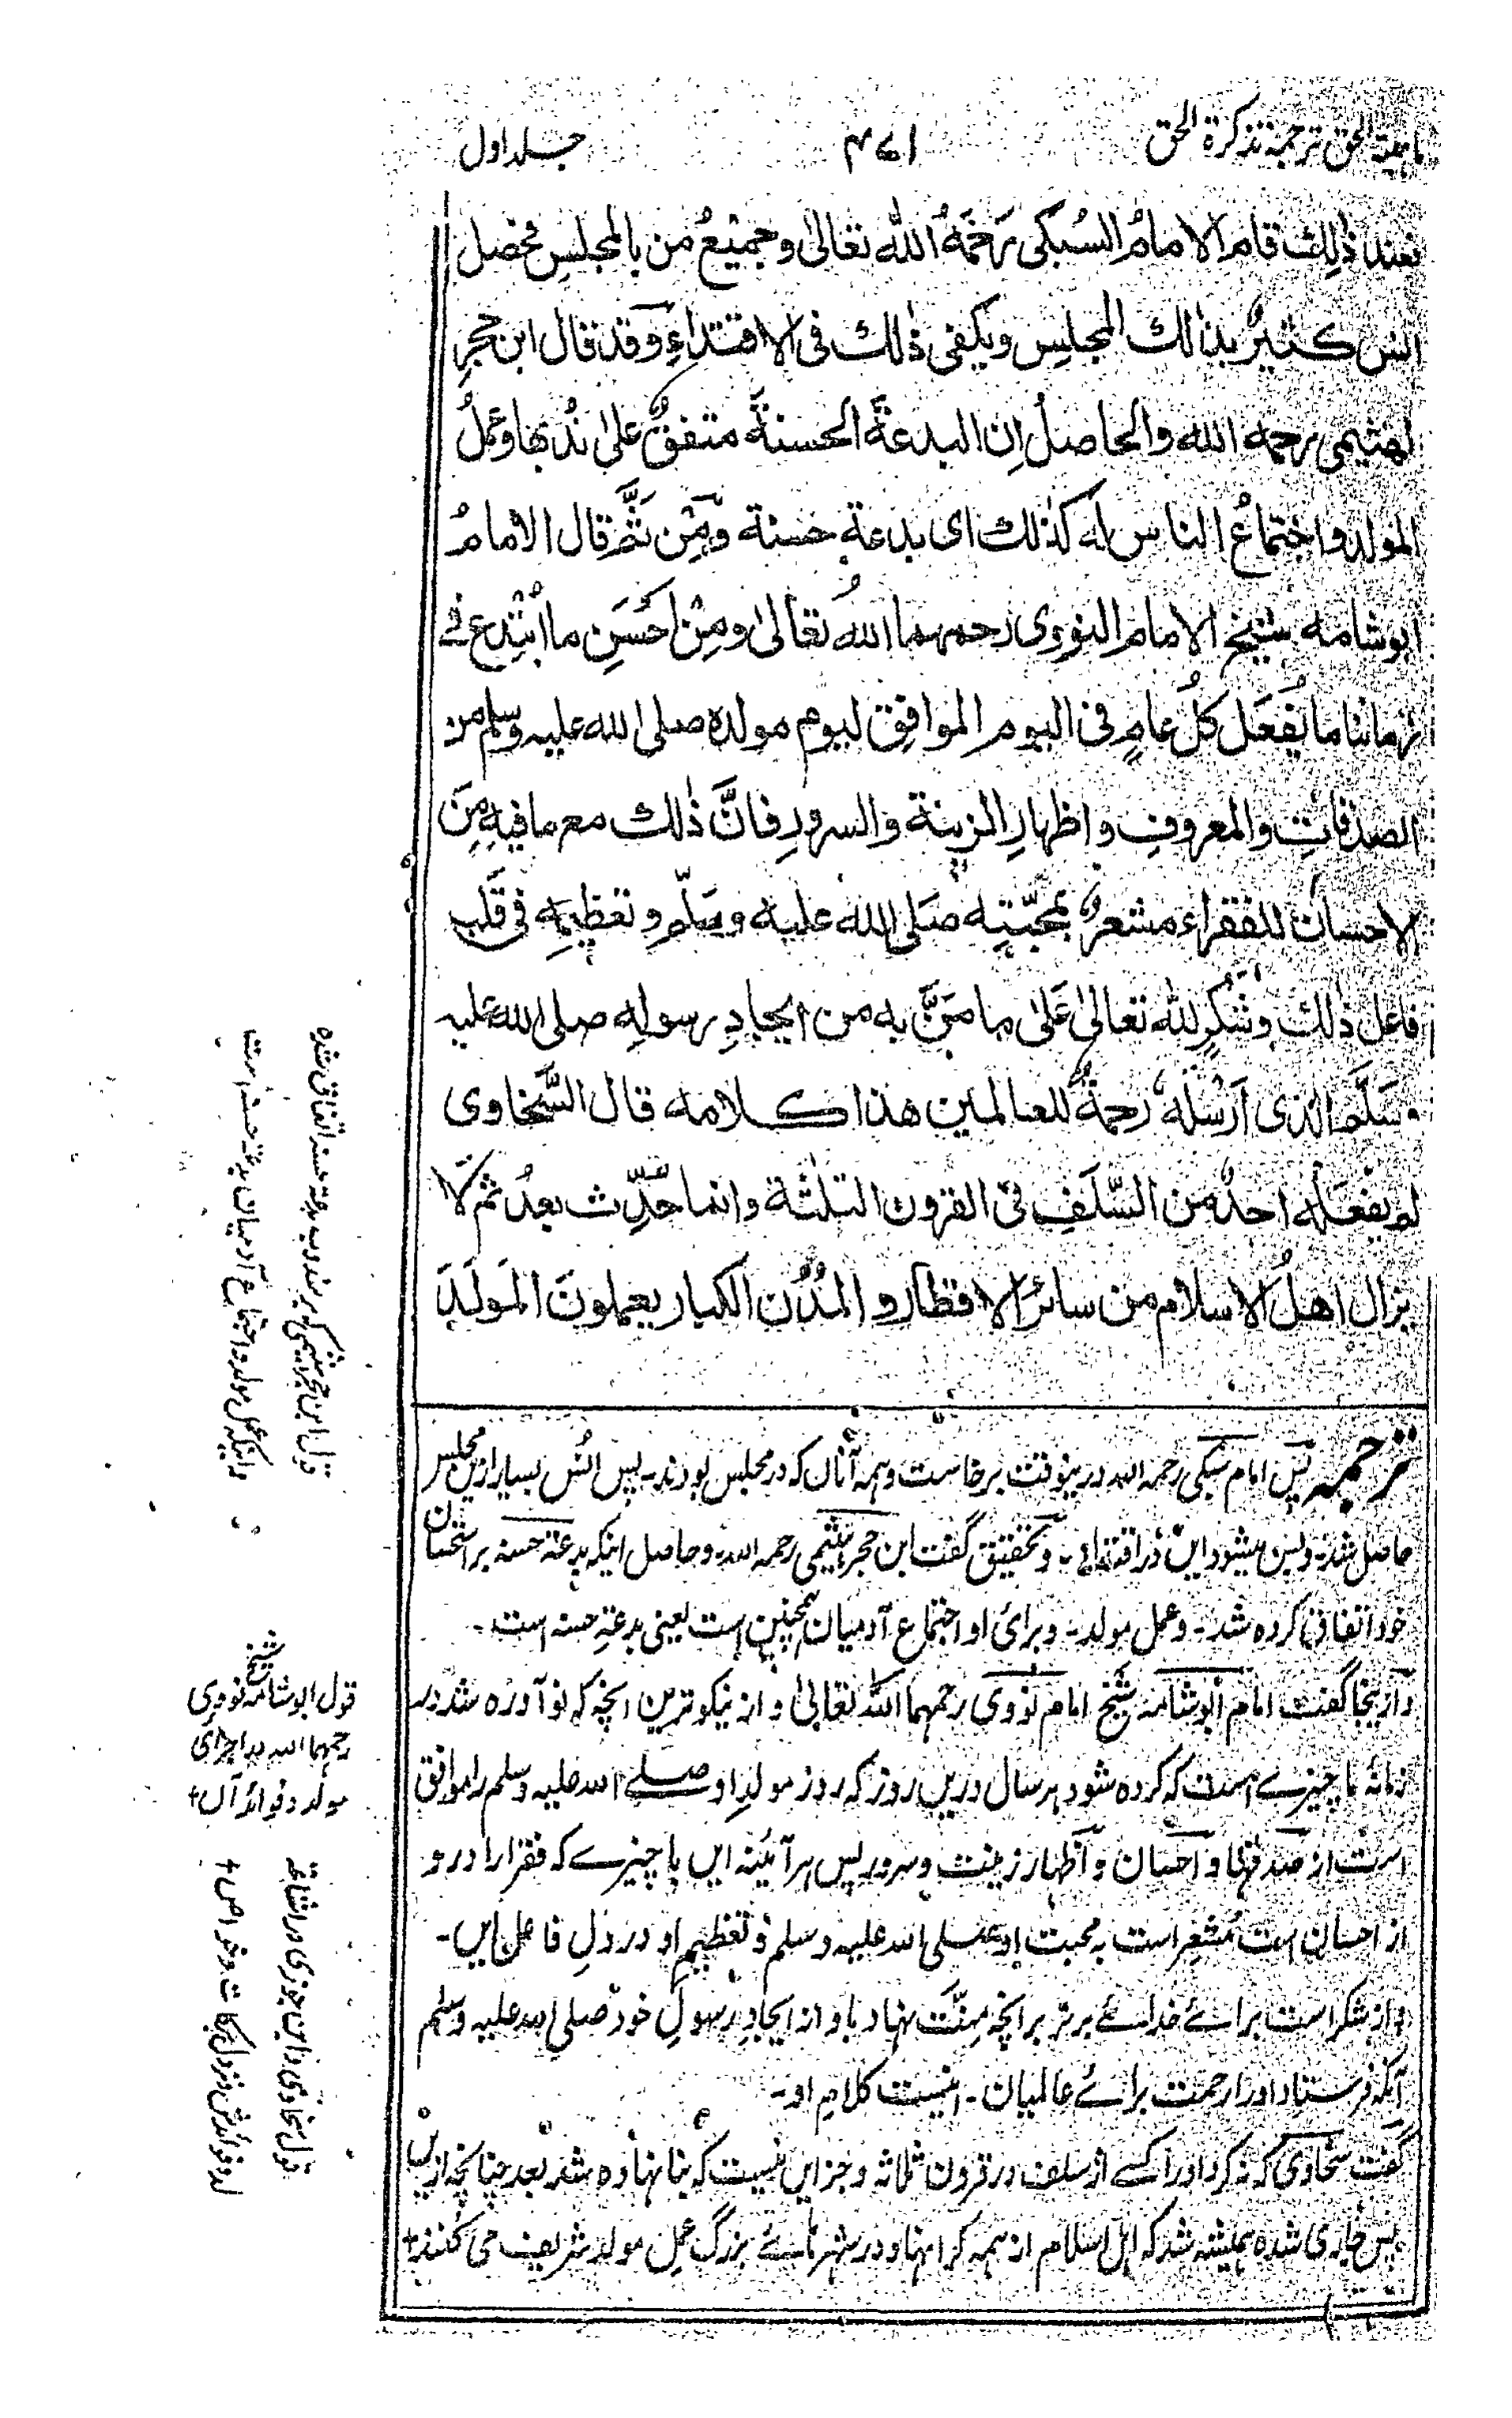 ترجمة تذكرة الحق
۴۷۱
جلد اول
فعند ذٰلِك قام الامامُ السُبكى رَحْمَةُ الله تعالىٰ وجميعُ من بالمجلسِ فحصل
انس كثيرٌ بذالك المجلِس ويكفى ذٰلك فى الاقتداءِ وقد قال ابن حجرِ
لهيتمى رحمه الله والحاصلُ اِن البدعةَ الحسنةَ متفقٌ علىٰ نُدبها وعملُ
المولد واجتماعُ الناس له كذٰلك اى بدعة حسنة ومِن ثَمَّ قال الامامُ
ابوشامه شيخ الامام النووى رحمهما اللهُ تعالىٰ ومِنْ اَحْسَنِ ما ابْتُدِع فے
زماننا ما يُفعَل كلَّ عامٍ فى اليوم الموافِق ليوم مولدهٖ صلى الله عليه وسلم من
الصدقاتِ والمعروفِ واظهارِ الزينة والسرورِ فانَّ ذٰلك مع مافيهِ مِنَ
الاحسان للفقراء مشعرٌ بمحبّتِهٖ صَلى الله عليه وسلّم وتعظيمِهٖ فى قَلْبِ
فاعل ذٰلك وشُكرٍ لله تعالىٰ عَلىٰ ما مَنَّ به من ايجادِ رسولِهٖ صلى الله عليه
وسَلَّم الذى اَرْسَلَه رحمةً للعالمين هذا كلامه قال السَّخاوى
لم يفعَله احدٌ من السَّلَفِ فى القرون الثلٰثة وانما حُدِّث بعدُ ثم لَا
يزال اهلُ الاسلام من سائر الاقطار والمُدُن الكبار يعملونَ المَولَدَ
ترجمه پس امام سبكى رحمه الله درينوقت برخاست وہمہ آنان کہ در مجلس بودند۔ پس اُنس بسيار ازين مجلس
حاصل شد۔ وبس میشود این در اقتداے۔ وبتحقیق گفت ابن حجر ہیتمی رحمه الله۔ وحاصل اینکہ بدعۃ حسنہ بر استحسان
خود اتفاق کرده شد۔ وعمل مولد۔ وبرائ او اجتماع آدمیان ہمچنین است یعنی بدعۃ حسنہ است۔
وازینجا گفت امام ابوشامه شیخ امام نووی رحمهما الله تعالیٰ واز نیکوترین آنچہ کہ نو آورده شد در
زمانہ ما چیزے است کہ کرده شود ہر سال درین روز کہ روز مولدِ او صلے الله علیه وسلم را موافق
است از صدقہا واحسان واظہار زینت وسرور پس ہر آئینہ این با چیزے کہ فقرا را درو
از احسان است مُشعِر است بہ محبت او صلی الله علیه وسلم وتعظیمِ او در دلِ فاعل این۔
واز شکر است برائے خدائے برتر بر آنچہ مِنّت نہاد باو از ایجادِ رسولِ خود صلی الله علیه وسلم
آنکہ فرستاد او را رحمت برائے عالمیان۔ اینست کلامِ او۔
گفت سخاوی کہ نکرد او را کسے از سلف در قرون ثلاثہ وجز این نیست کہ بنا نہاده شد بعد چنانچہ ازین
پس جاری شده ہمیشہ شد کہ اہل اسلام از ہمہ کرانہا ودر شہرہائے بزرگ عمل مولد شریف می کنند+
قول ابن حجر ہیثمی کہ بر ندوب بدعۃ حسنہ اتفاق شده
واینکہ عمل مولد واجتماع آدمیان بدعۃ حسنہ است
قول ابوشامہ شیخ نووی
رحمهما الله بر اجرائ
مولد وفوائد آن+
قول سخاوی وابن جوزی در